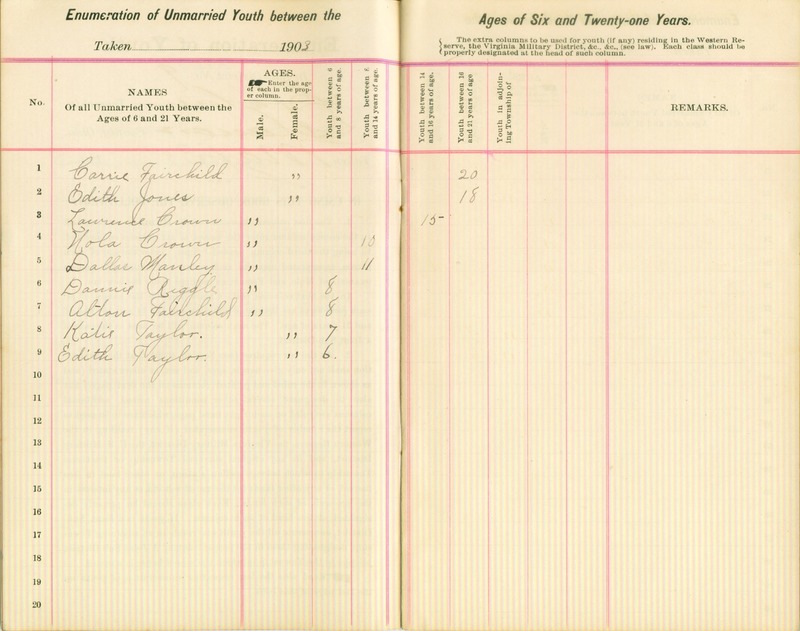 Enumeration of Unmarried Youth between the
Ages of Six and Twenty-one Years.
Taken 1903
The extra columns to be used for youth (if any) residing in the Western Re-
serve, the Virginia Military District, &c., &c., (see law). Each class should be
properly designated at the head of such column.
No.
NAMES
Of all Unmarried Youth between the
Ages of 6 and 21 Years.
AGES.
Enter the age
of each in the prop-
er column.
Male.
Female.
Youth between 6
and 8 years of age.
Youth between 8
and 14 years of age.
Youth between 14
and 16 years of age.
Youth between 16
and 21 years of age
Youth in adjoin-
ing Township of
REMARKS.
1 Carrie Fairchild " 20
2 Edith Jones " 18
3 Lawrence Crown " 15
4 Nola Crown "
5 Dallas Manley " 11
6 Dannie Riggle " 8
7 Alton Fairchild " 8
8 Katie Taylor. " 7
9 Edith Taylor. " 6.
10
11
12
13
14
15
16
17
18
19
20